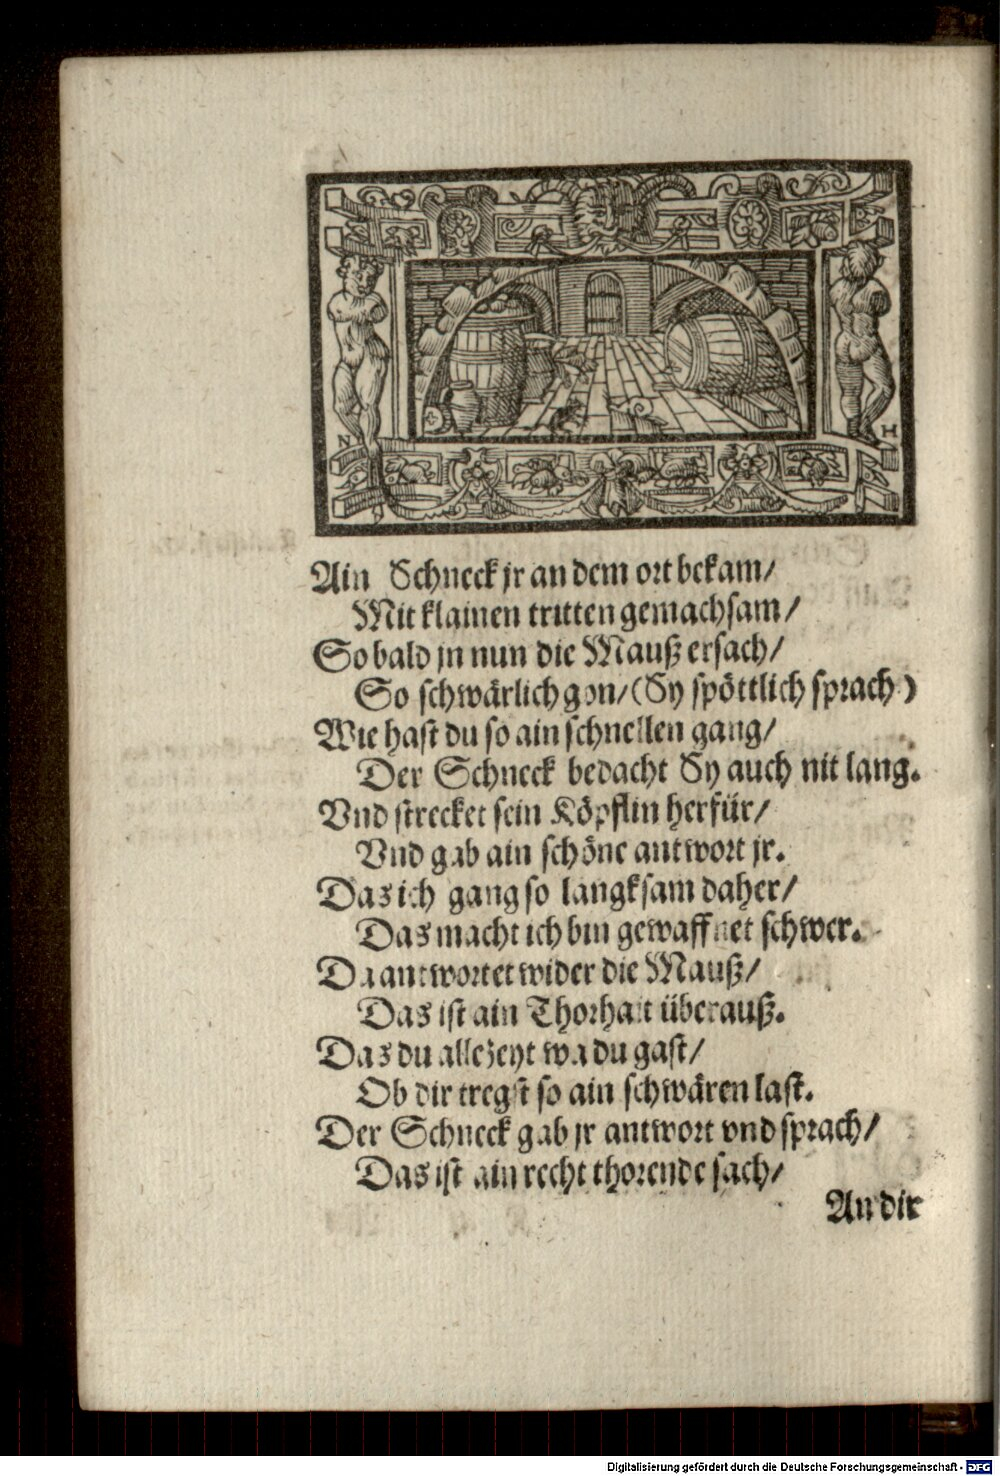 N H
Ain Schneck jr an dem ort bekam/
Mit klainen tritten gemachsam/
So bald jn nun die Mauß ersach/
So schwärlich gon/(Sy spöttlich sprach)
Wie hast du so ain schnellen gang/
Der Schneck bedacht Sy auch nit lang.
Vnd strecket sein Köpflin herfür/
Vnd gab ain schöne antwort jr.
Das ich gang so langksam daher/
Das macht ich bin gewaffnet schwer.
Da antwortet wider die Mauß/
Das ist ain Thorhait überauß.
Das du allezeyt wa du gast/
Ob dir tregst so ain schwären last.
Der Schneck gab jr antwort vnd sprach/
Das ist ain recht thorende sach/
An dir
Digitalisierung gefördert durch die Deutsche Forschungsgemeinschaft - DFG